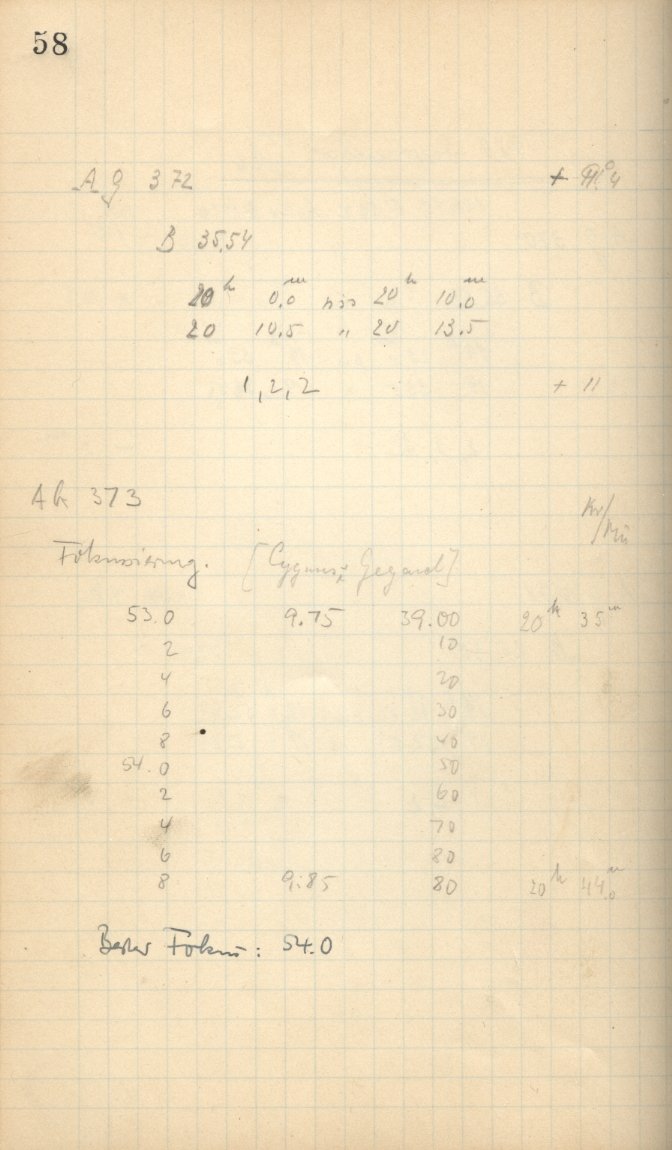 58
A g 372 +
B 35.54
20 h 0.0 m bis 20 h 10.0 m
20 10.5 " 20 13.5
1, 2, 2 + 11
373
Fokussierung. [Cygnus Gegend]
53.0 9.75 39.00 20 h 35 m
2 10
4 20
6 30
8 40
54.0 50
2 60
4 70
6 80
8 9.85 80 20 h 44.0 m
Bester Fokus: 54.0